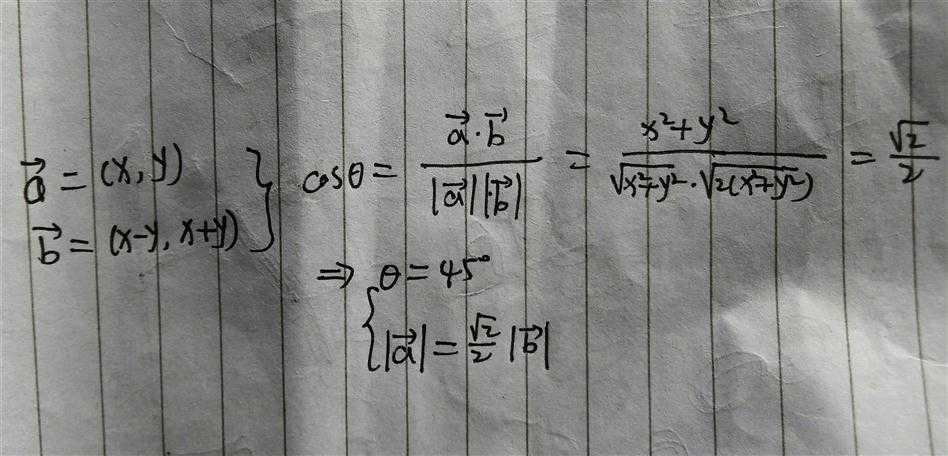 $\vec{a} = (x, y)$
$\vec{b} = (x-y, x+y)$
$\} \cos\theta = \frac{\vec{a} \cdot \vec{b}}{|\vec{a}||\vec{b}|} = \frac{x^2+y^2}{\sqrt{x^2+y^2} \cdot \sqrt{2(x^2+y^2)}} = \frac{\sqrt{2}}{2}$
$\Rightarrow \{ \theta = 45^\circ$
$|\vec{a}| = \frac{\sqrt{2}}{2} |\vec{b}|$